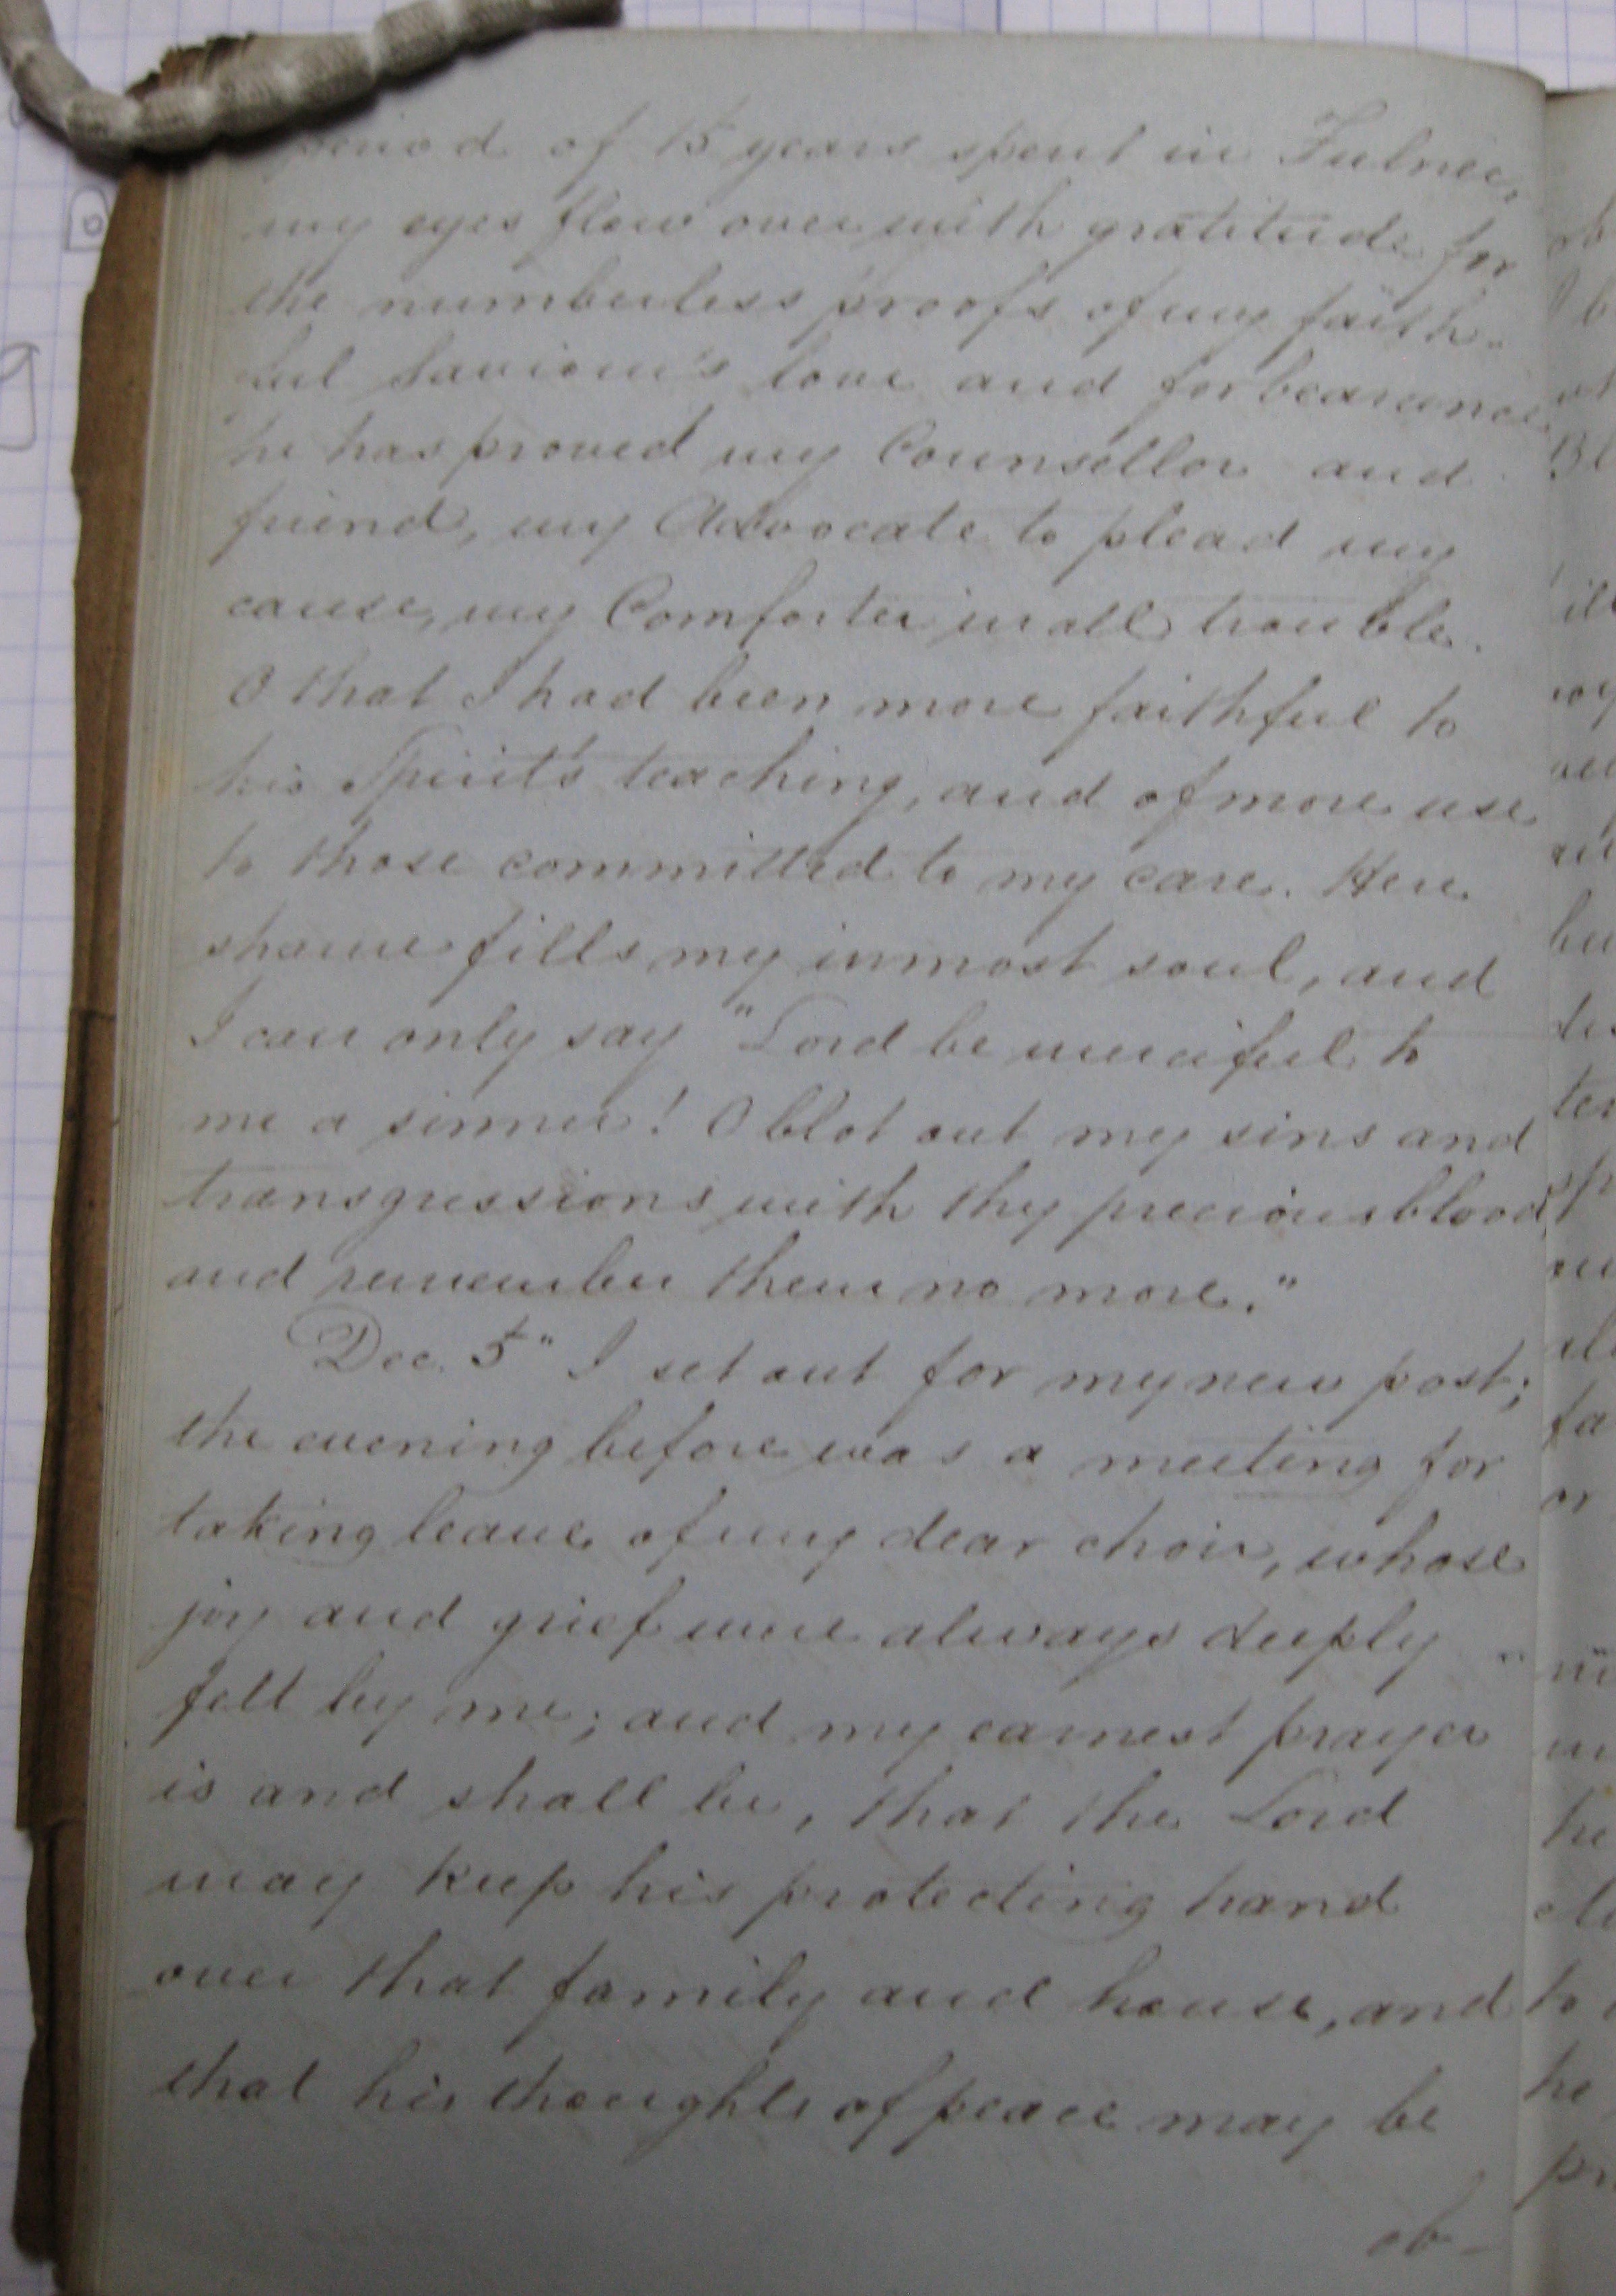 period of 15 years spent in Fulnec,
my eyes flow over with gratitude for
the numberless proofs of my faith-
ful Saviour's love and forbearance
he has proved my Counsellor and
friend, my Advocate to plead my
cause, my Comforter in all trouble.
O that I had been more faithful to
his Spirit's teaching, and of more use
to those committed to my care. Here
shame fills my inmost soul, and
I can only say "Lord be merciful to
me a sinner! O blot out my sins and
transgressions with thy precious blood,
and remember them no more."
Dec. 5" I set out for my new post;
the evening before was a meeting for
taking leave of my dear choir, whose
joy and grief were always deeply
felt by me; and my earnest prayer
is and shall be, that the Lord
may keep his protecting hand
over that family and house, and
that his thoughts of peace may be
ob-